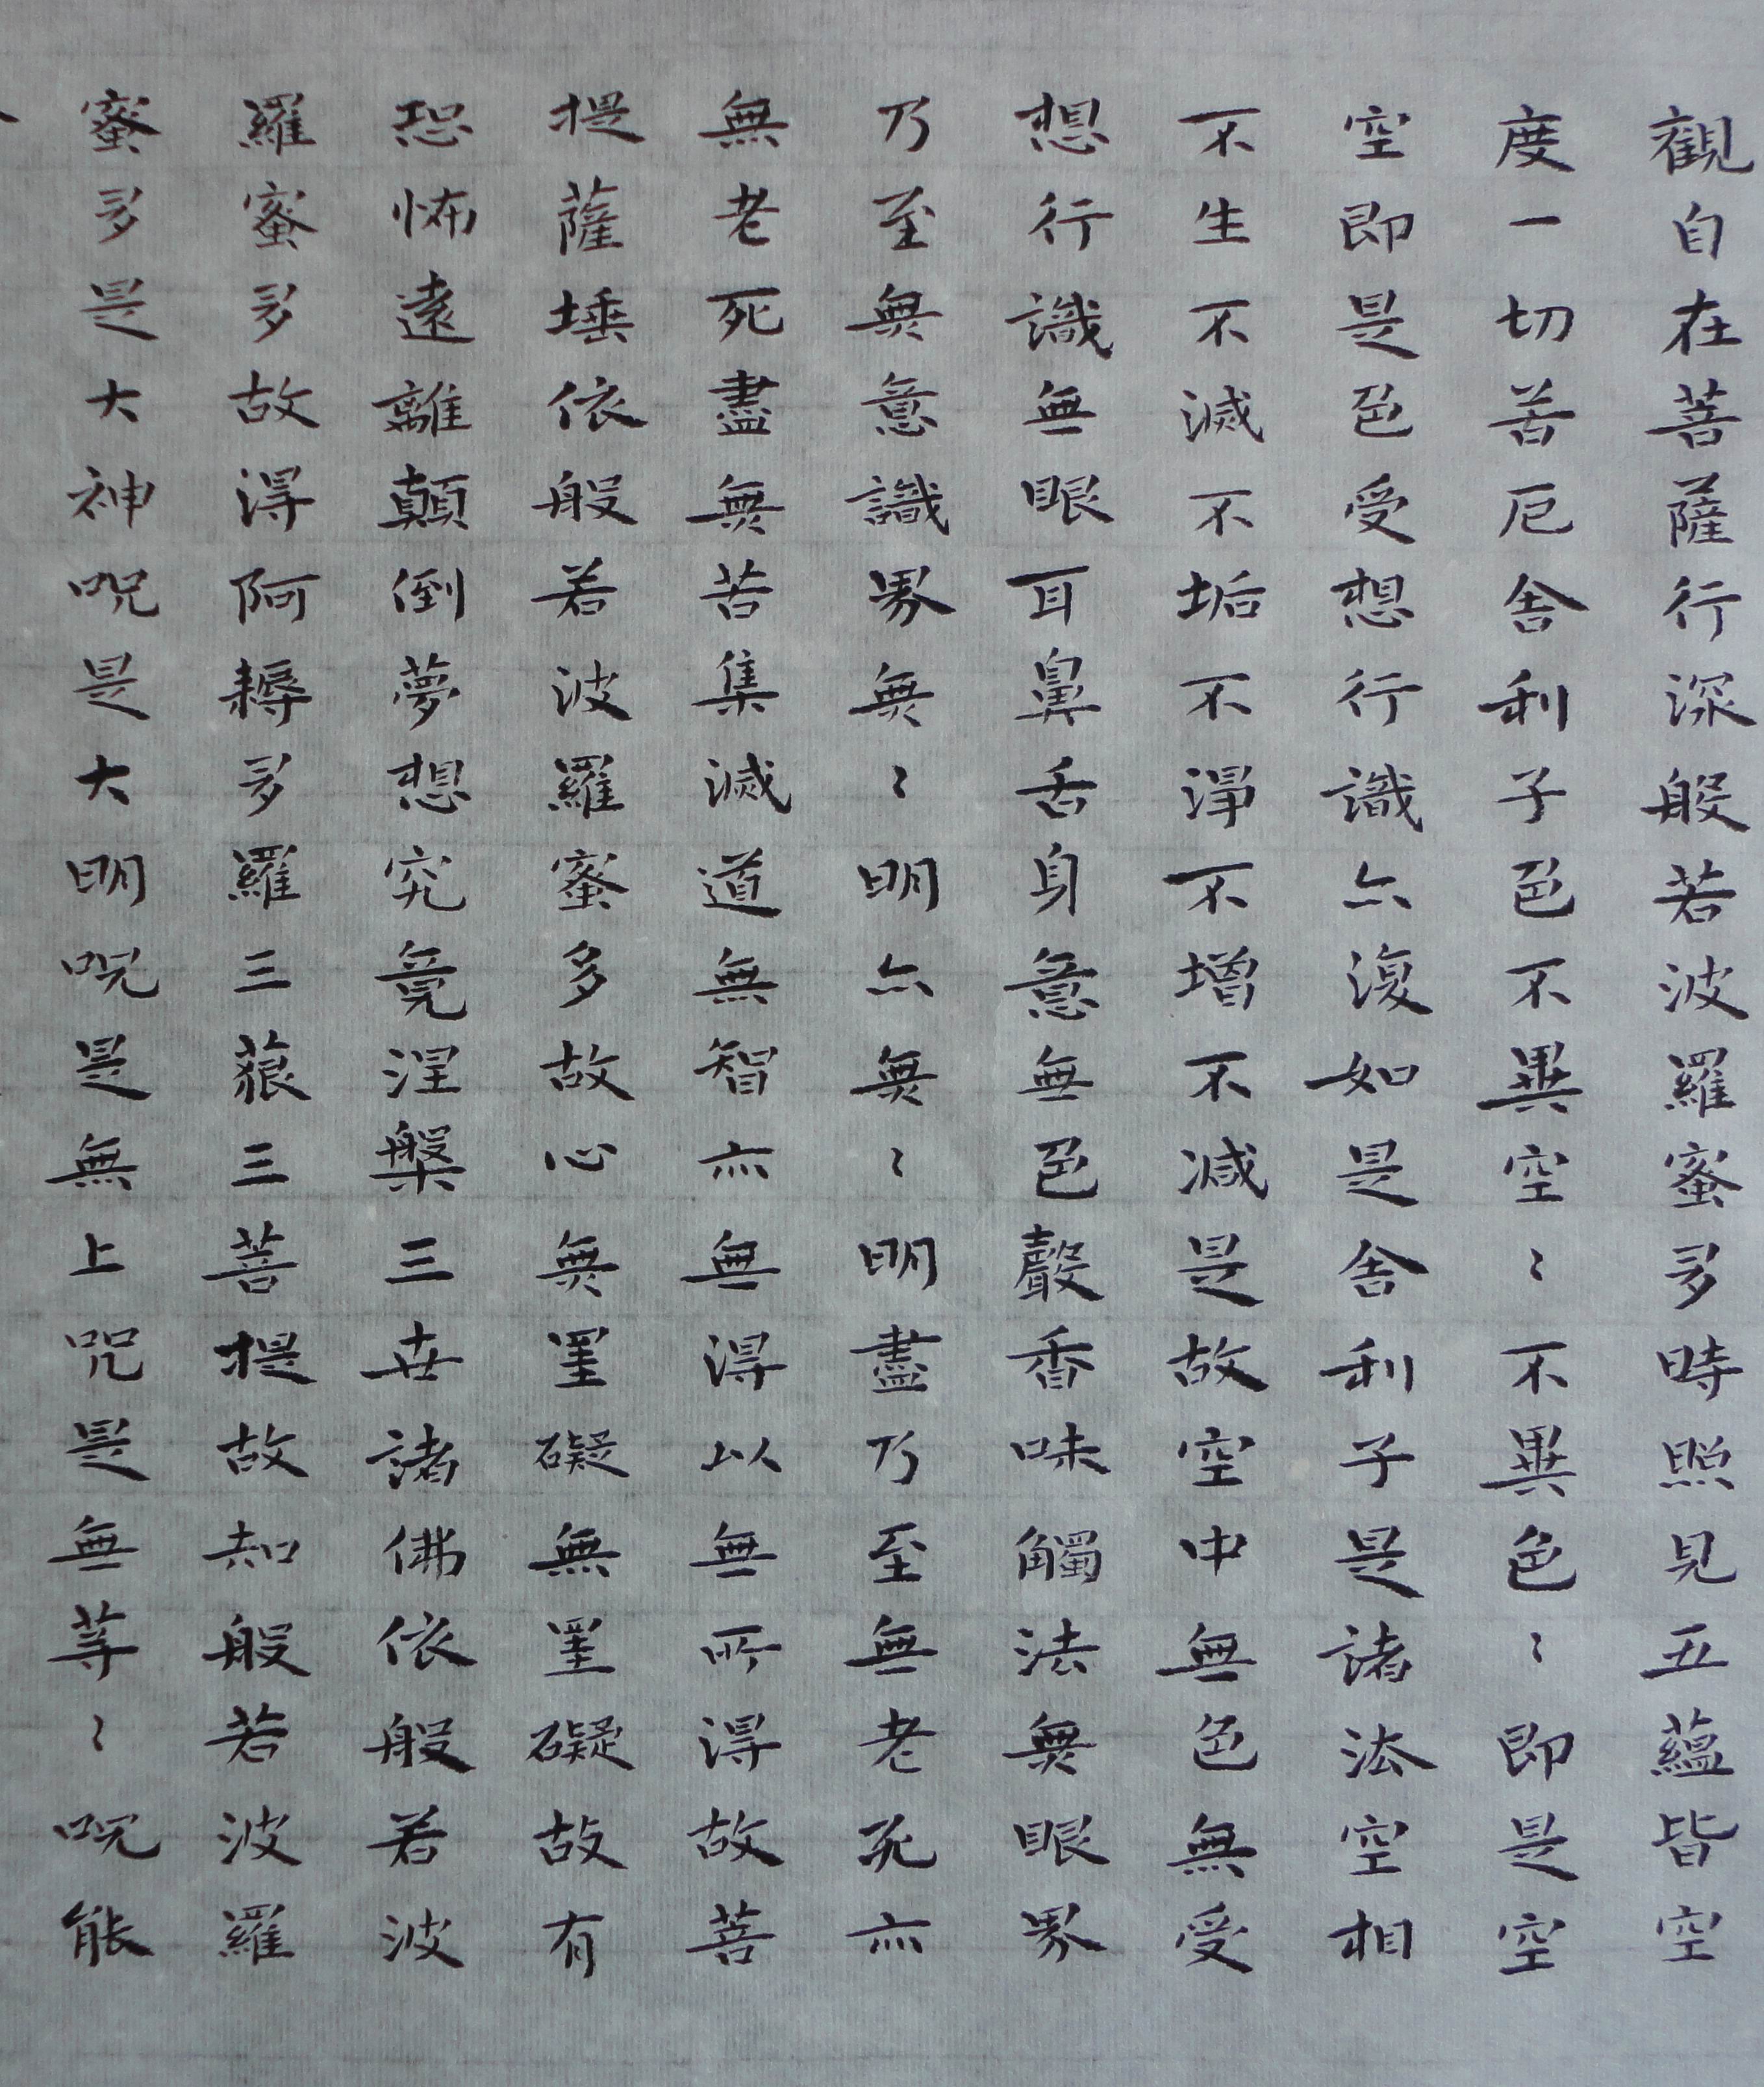 觀自在菩薩行深般若波羅蜜多時照見五蘊皆空
度一切苦厄舍利子色不異空〻不異色〻即是空
空即是色受想行識亦復如是舍利子是諸法空相
不生不滅不垢不淨不增不減是故空中無色無受
想行識無眼耳鼻舌身意無色聲香味觸法無眼界
乃至無意識界無〻明亦無〻明盡乃至無老死亦
無老死盡無苦集滅道無智亦無得以無所得故菩
提薩埵依般若波羅蜜多故心無罣礙無罣礙故有
恐怖遠離顛倒夢想究竟涅槃三世諸佛依般若波
羅蜜多故得阿耨多羅三藐三菩提故知般若波羅
蜜多是大神呪是大明呪是無上咒是無等〻呪能